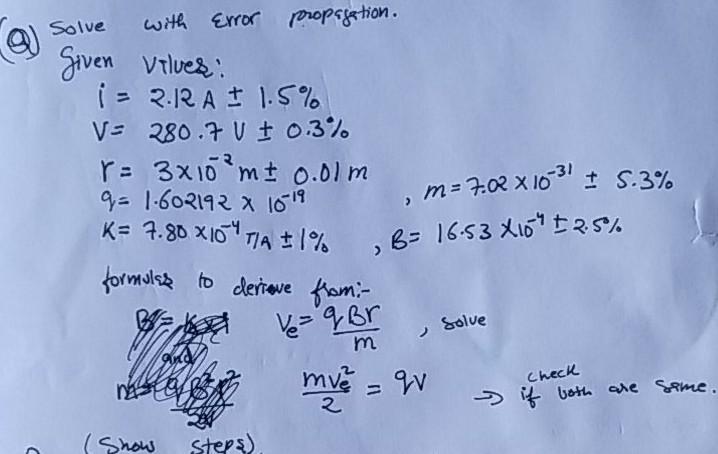 (Q) Solve with Error propagation.
Given Values:
i = 2.12 A ± 1.5%
V = 280.7 V ± 0.3%
r = 3×10⁻² m ± 0.01 m
q = 1.602192 × 10⁻¹⁹ , m = 7.02 × 10⁻³¹ ± 5.3%
K = 7.80 ×10⁻⁴ T/A ± 1% , B = 16.53 ×10⁻⁴ ± 2.5%
formulas to derieve from:-
Ve = qBr/m , solve
mve²/2 = qV → check if both are same.
(Show steps)